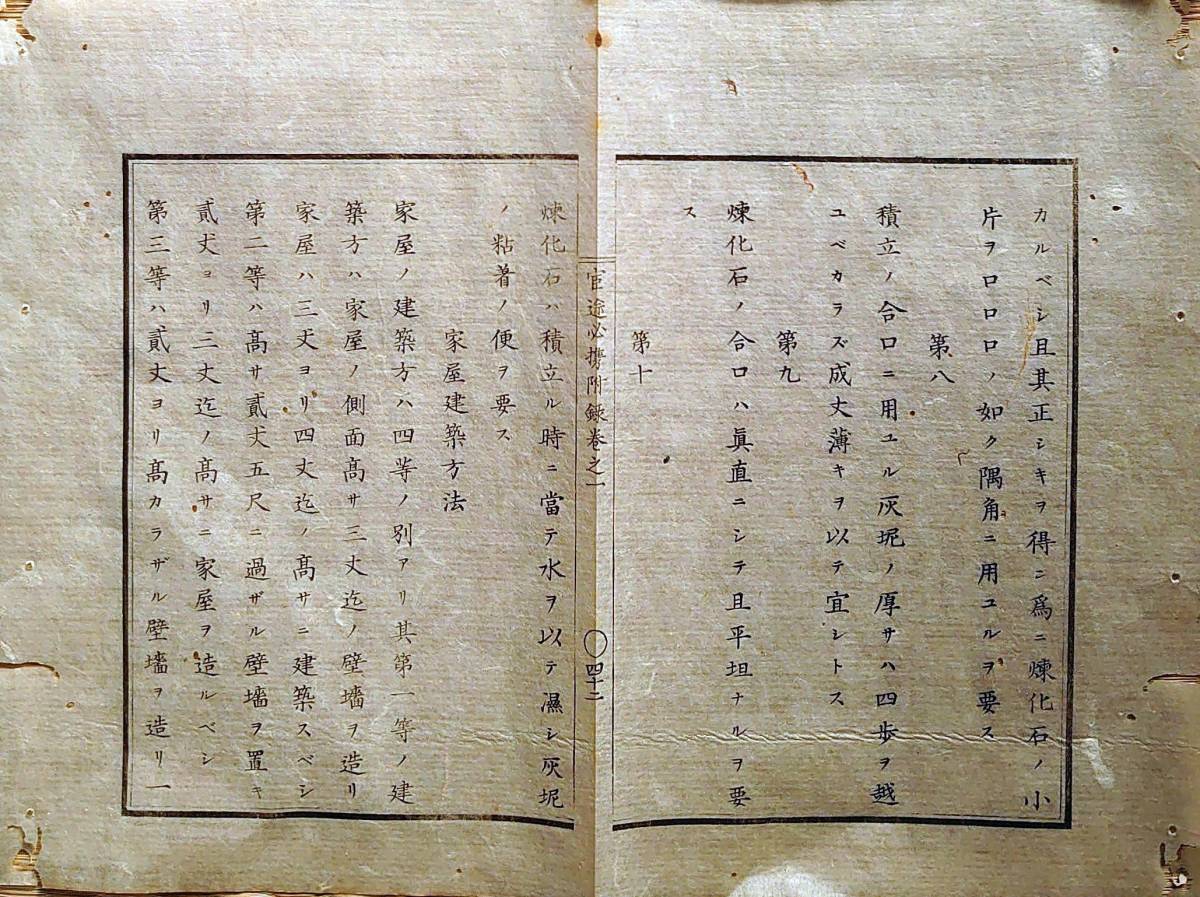 カルベシ且其正シキヲ得ニ爲ニ煉化石ノ小
片ヲ口口口ノ如ク隅角ニ用ユルヲ要ス
第八
積立ノ合口ニ用ユル灰坭ノ厚サハ四歩ヲ越
ユベカラズ成丈薄キヲ以テ宜シトス
第九
煉化石ノ合口ハ眞直ニシテ且平坦ナルヲ要
ス
第十
官途必携附錄巻之一
〇四十二
煉化石ハ積立ル時ニ當テ水ヲ以テ濕シ灰坭
ノ粘着ノ便ヲ要ス
家屋建築方法
家屋ノ建築方ハ四等ノ別アリ其第一等ノ建
築方ハ家屋ノ側面髙サ三丈迄ノ壁墻ヲ造リ
家屋ハ三丈ヨリ四丈迄ノ髙サニ建築スベシ
第二等ハ髙サ貳丈五尺ニ過ザル壁墻ヲ置キ
貳丈ヨリ三丈迄ノ髙サニ家屋ヲ造ルベシ
第三等ハ貳丈ヨリ髙カラザル壁墻ヲ造リ一